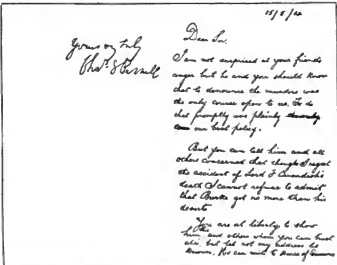 15/5/82
Dear Sir,
I am not surprised at your friend's
anger but he and you should know
that to denounce the murders was
the only course open to us. To do
that promptly was plainly
our best policy.
But you can tell him and all
others concerned that though I regret
the accident of Lord F Cavendish's
death I cannot refuse to admit
that Burke got no more than his
deserts
You are at liberty to show
him this, and others whom you can trust
also, but let not my address be
known. He can write to House of Commons
Yours very truly
Chas. S Parnell